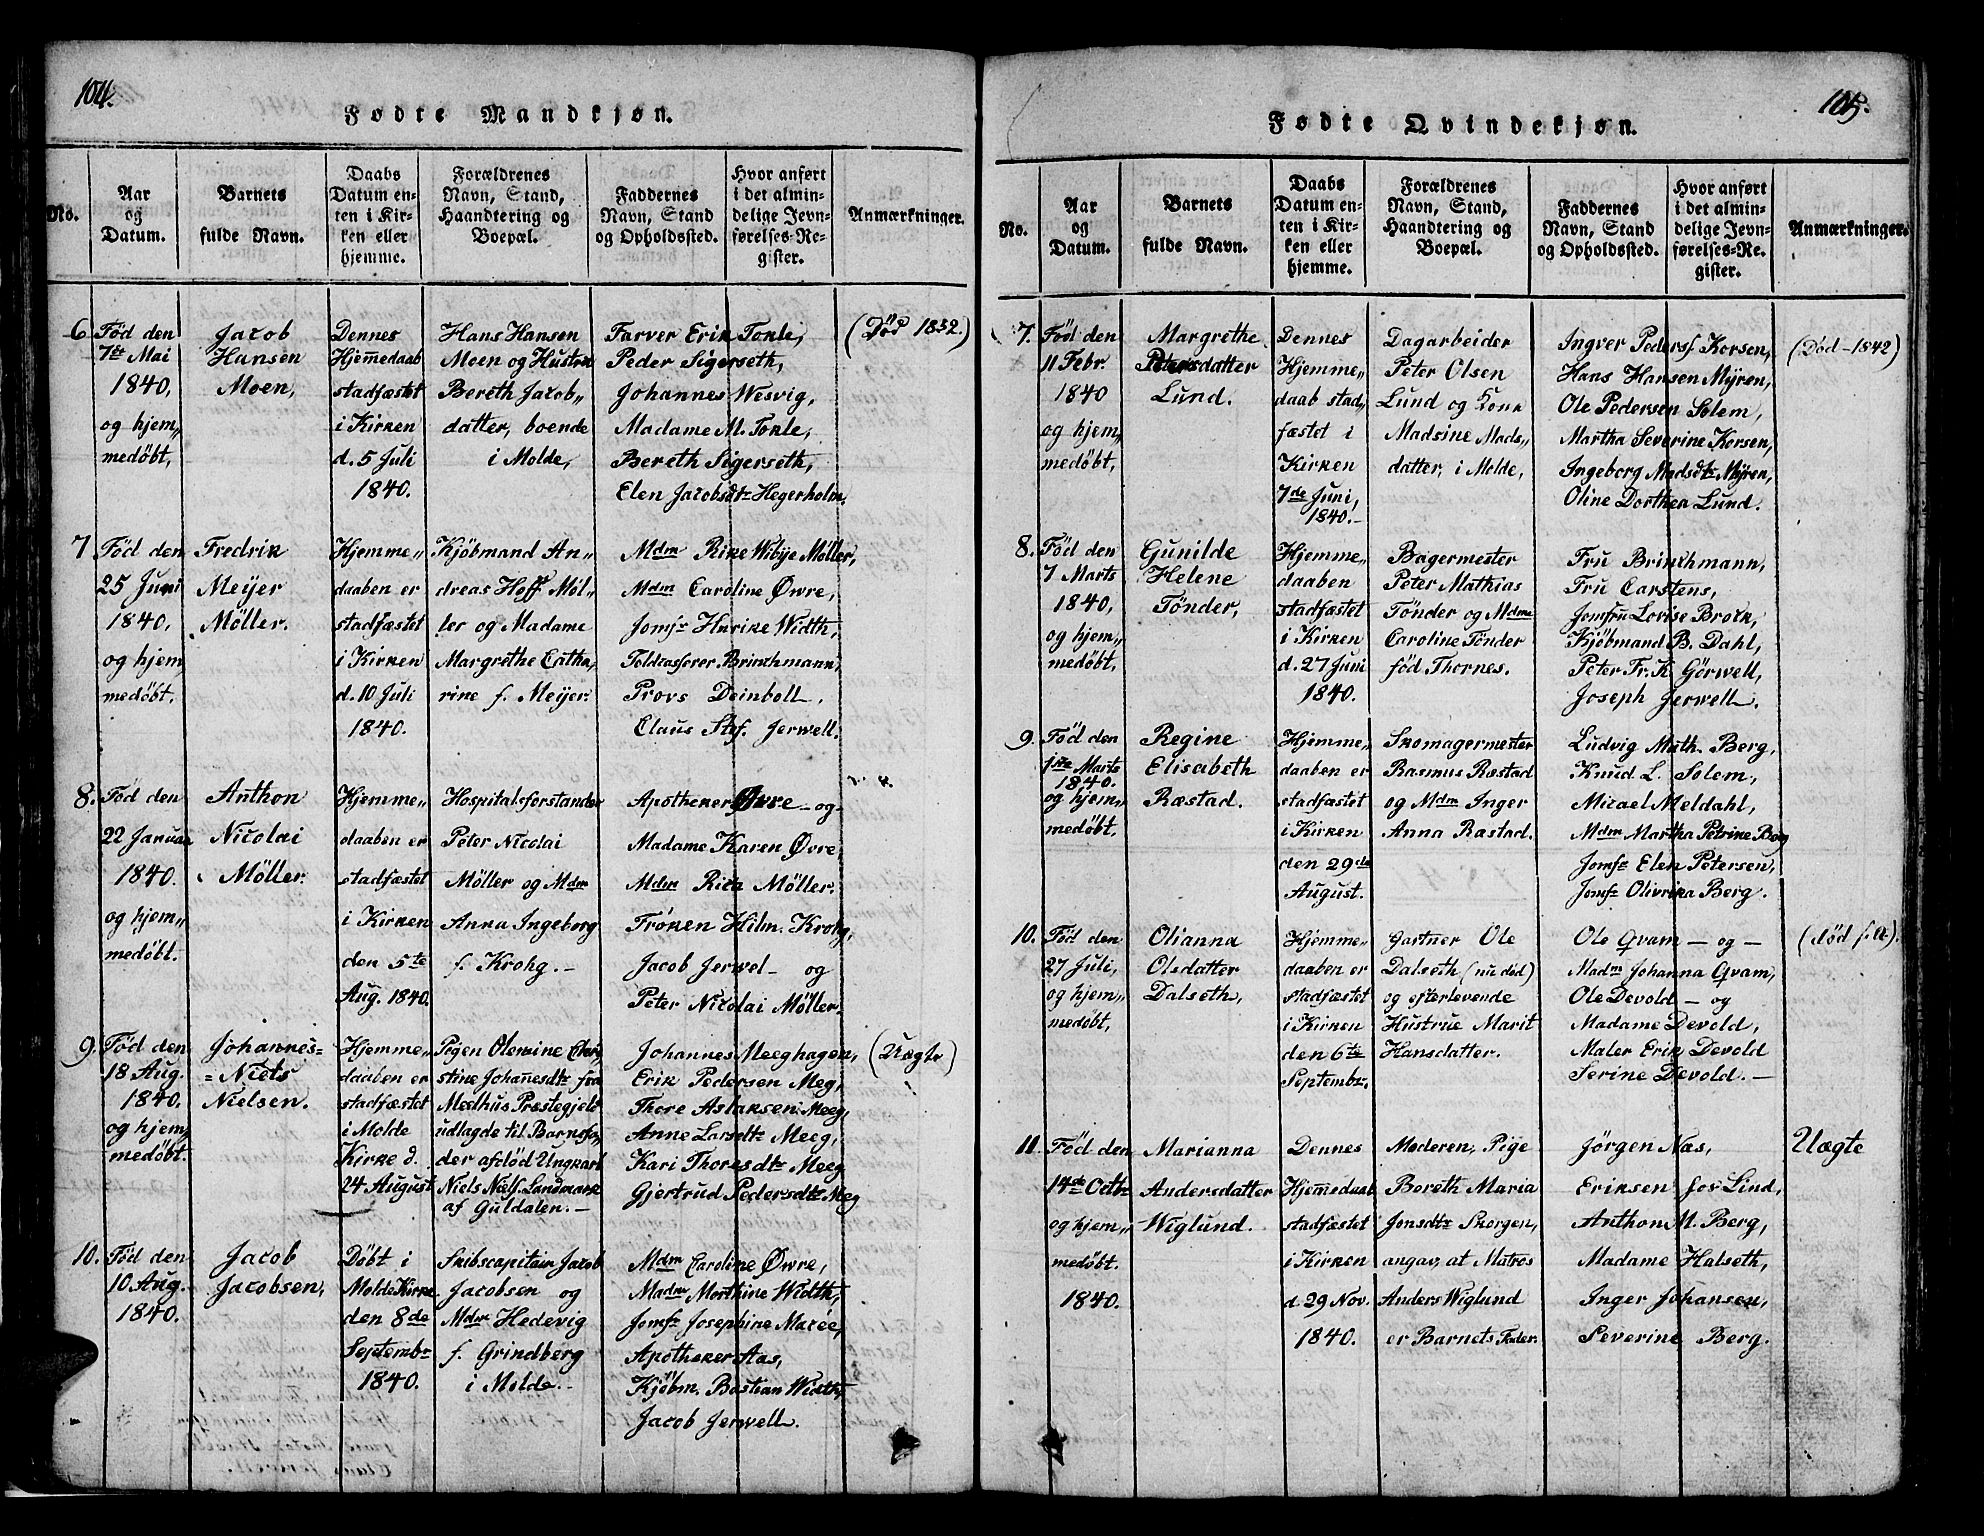 104.
Fødte Mandkjøn.
No.
Aar
og
Datum.
Barnets
fulde Navn.
Daabs
Datum en-
ten i Kir-
ken eller
hjemme.
Forældrenes
Navn, Stand,
Haandtering og
Boepæl.
Faddernes
Navn, Stand
og Opholdssted.
Hvor anført
i det almin-
delige Jevn-
førelses-Re-
gister.
Anmærkninger.
6.
Fød den
7de Mai
1840,
og hjem„
medøbt,
Jacob
Hansen
Moen,
Dennes
Hjemedaab
stadfæstet
i Kirken
d. 5 Juli
1840.
Hans Hansen
Moen og Hustru
Bereth Jacob„
datter, boende
i Molde,
Farver Erik Tokle,
Peder Sigerseth,
Johannes Wesvig,
Madame M. Tokle,
Bereth Sigerseth,
Elen Jacobsdtr Hegerholm.
(Død 1832.)
7
Fød den
25 Juni
1840,
og hjem
medøbt.
Fredrik
Meijer
Möller.
Hjemme„
daaben er
stadfæstet
i Kirken
d. 10 Juli
1840.
Kjöbmand An„
dreas Hoff Möl„
ler og Madame
Margrethe Catha,
rine f. Meijer.
Mdm Rike Wibye Möller,
Mdm Caroline Øvre,
Jomfr Henrike Width,
Toldkasserer Brinchmann,
Provs Deinboll,
Claus Stf. Jerwell.
8.
Fød den
22 Januar
1840.
og hjem„
medøbt.
Anthon
Nicolai
Möller.
Hjemme„
daaben er
stadfæstet
i Kirken
den 5te
Aug. 1840.
Hospitalsforstander
Peter Nicolai
Möller og Mdm
Anna Ingeborg
f. Krohg.—
Apotheker Øvre — og
Madame Karen Øvre,
Mdm Rica Möller.
Fröken Hilm. Krohg,
Jacob Jerwel — og
Peter Nicolai Möller.
9.
Fød den
18 Aug.
1840.
og hjem„
medøbt.
Johannes=
=Niels
Nielsen.
Hjemme„
daaben er
stadfæstet
i Molde
Kirke d.
24 August
Pigen Olenine Chri
stine Johanesdtr fra
Meelhus Præstegjeld
udlagde til Barnefa„
der afdød Ungkarl
Niels Nielf. Landmark
af Guldalen.—
Johannes Meeghagen,
Erik Pedersen Meg,
Thore Aslaksen Meeg,
Anne Larsdtr Meeg,
Kari Thorksdtr Meeg
Gjertrud Pedersdtr Meg
(Uægte)
10.
Fød den
10 Aug.
1840.
Jacob
Jacobsen,
Døbt i
Molde Kirke
den 8de
Septembr
1840.
Skibscapitain Jacob
Jacobsen og
Mdm Hedevig
f. Grindberg
i Molde.—
Mdm Caroline Øvre,
Madm Morthine Width,
Jomfr Josephine Maree,
Apotheker Aas,
Kjöbm. Bastian Width,
Jacob Jerwell.
105.
Fødte Qvindekjøn.
No.
Aar
og
Datum.
Barnets
fulde Navn.
Daabs
Datum en-
ten i Kir-
ken eller
hjemme.
Forældrenes
Navn, Stand,
Haandtering og
Boepæl.
Faddernes
Navn, Stand
og Opholdssted.
Hvor anført
i det almin-
delige Jevn-
førelses-Re-
gister.
Anmærkninger.
7.
Fød den
11 Febr.
1840
og hjem„
medøbt,
Margrethe
Petersdatter
Lund.
Dennes
Hjemme„
daab stad„
fæstet i
Kirken
7de Juni,
1840.—
Dagarbeider
Peter Olsen
Lund og Kone
Madsine Mads„
datter, i Molde,
Ingver Pedersf. Korsen,
Hans Hansen Myren,
Ole Pedersen Solem,
Martha Severine Korsen,
Ingeborg Madsdtr Myren,
Oline Dorthea Lund.
(Død — 1842)
8.
Fød den
7 Marts
1840,
og hjem„
medøbt.
Gunilde
Helene
Tönder,
Hjemme„
daaben
stadfæstet
i Kirken
d. 27 Juni
1840.
Bagermester
Peter Mathias
Tönder og Mdme
Caroline Tönder
fød Thornes.
Fru Brinchmann,
Fru Carstens,
Jomfru Lovise Brock,
Kjöbmand B. Dahl,
Peter Fr. K. Görwell,
Joseph Jerwell.
9.
Fød den
1ste Marts
1840.
og hjem„
medøbt.
Regine
Elisabeth
Ræstad.
Hjemme„
daaben er
stadfæstet
i Kirken
den 29de
August.
Skomagermester
Rasmus Ræstad
og Mdm Inger
Anna Rastad.
Ludvig Math. Berg,
Knud L. Solem,
Micael Meldahl,
Mdm Martha Petrine Berg
Jomfr Elen Petersen,
Jomfr Olivrika Berg.
10.
Fød den
27 Juli,
og hjem„
medøbt,
Olianna
Olsdatter
Dalseth,
Hjemme„
daaben er
stadfæstet
i Kirken
den 6te
Septembr.
Gastner Ole
Dalseth (nu død)
og efterlevende
Hustrue Marit
Hansdatter.
Ole Qvam — og —
Madm Johanna Qvam,
Ole Devold — og
Madame Devold,
Maler Erik Devold
Serine Devold.—
11.
Fød den
14de Octbr
og hjem„
medøbt.
1840.
Marianna
Andersdatter
Wiglund.
Dennes
Hjemmedaab
stadfæstet
i Kirken
d. 29 Nov.
1840.
Moderen, Pige
Bereth Maria
Jonsdtr Skorgen,
angav, at Matros
Anders Wiglund
er Barnets Fader.
Jörgen Næs,
Eriksen for Lind,
Anthon M. Berg,
Madame Halseth,
Inger Johansen,
Severine Berg.
Uægte